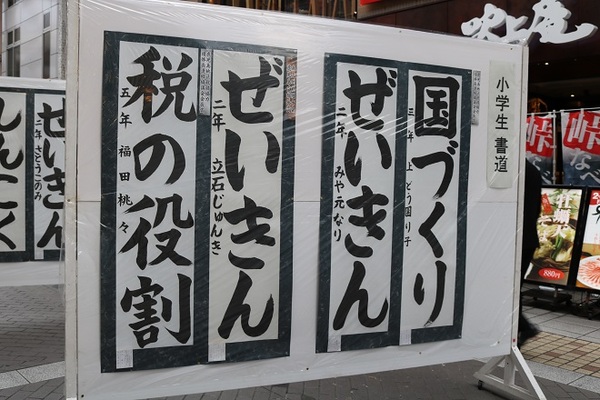 吹上庵
小学生 書道
国づくり
三年
ぜいきん
二年 みや元 なり
ぜいきん
二年 立石じゅんき
税の役割
五年 福田 桃々
ぜいきん
二年 さとうこのみ
峠
峠
880円